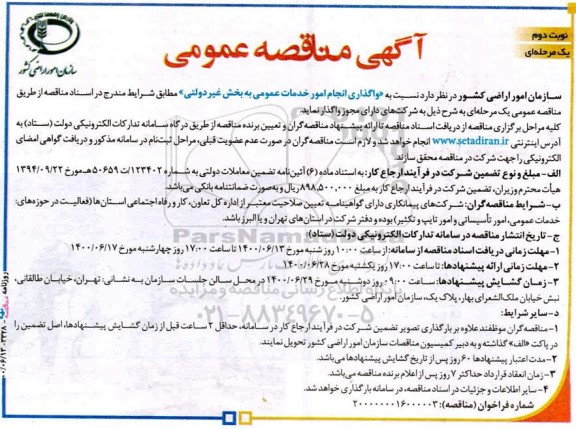 نوبت دوم
یک مرحله‌ای
آگهی مناقصه عمومی
سازمان امور اراضی کشور
سازمان امور اراضی کشور در نظر دارد نسبت به «واگذاری انجام امور خدمات عمومی به بخش غیر دولتی» مطابق شرایط مندرج در اسناد مناقصه از طریق
مناقصه عمومی یک مرحله‌ای به شرح ذیل به شرکت‌های دارای مجوز واگذار نماید.
کلیه مراحل برگزاری مناقصه از دریافت اسناد مناقصه تا ارائه پیشنهاد مناقصه‌گران و تعیین برنده مناقصه از طریق درگاه سامانه تدارکات الکترونیکی دولت (ستاد) به
آدرس اینترنتی www.setadiran.ir انجام خواهد شد و لازم است مناقصه‌گران در صورت عدم عضویت قبلی، مراحل ثبت‌نام در سامانه مذکور و دریافت گواهی امضای
الکترونیکی را جهت شرکت در مناقصه محقق سازند.
الف- مبلغ و نوع تضمین شرکت در فرآیند ارجاع کار: به استناد ماده (۶) آئین‌نامه تضمین معاملات دولتی به شماره ۱۲۳۴۰۲/ت ۵۰۶۵۹هـ مورخ ۱۳۹۴/۰۹/۲۲
هیأت محترم وزیران، تضمین شرکت در فرآیند ارجاع کار به مبلغ ۸۹۸,۵۰۰,۰۰۰ ریال و به صورت ضمانتنامه بانکی می‌باشد.
ب- شرایط مناقصه‌گران: شرکت‌های پیمانکاری دارای گواهینامه تعیین صلاحیت معتبر از اداره کل تعاون، کار و رفاه اجتماعی استان‌ها (فعالیت در حوزه‌های:
خدمات عمومی، امور تأسیساتی و امور تایپ و تکثیر) بوده و دفتر شرکت در استان‌های تهران و یا البرز باشد.
ج- تاریخ انتشار مناقصه در سامانه تدارکات الکترونیکی دولت (ستاد):
۱- مهلت زمانی دریافت اسناد مناقصه از سامانه: از ساعت ۱۰:۰۰ روز شنبه مورخ ۱۴۰۰/۰۶/۱۳ تا ساعت ۱۷:۰۰ روز چهارشنبه مورخ ۱۴۰۰/۰۶/۱۷
۲- مهلت زمانی ارائه پیشنهادها: تا ساعت ۱۷:۰۰ روز یکشنبه مورخ ۱۴۰۰/۰۶/۲۸
۳- زمان گشایش پیشنهادها: ساعت ۰۹:۰۰ روز دوشنبه مورخ ۱۴۰۰/۰۶/۲۹ در محل سالن جلسات سازمان به نشانی: تهران، خیابان طالقانی،
نبش خیابان ملک‌الشعرای بهار، پلاک یک، سازمان امور اراضی کشور.
د- سایر شرایط:
۱- مناقصه‌گران موظفند علاوه بر بارگذاری تصویر تضمین شرکت در فرآیند ارجاع کار در سامانه، حداقل ۲ ساعت قبل از زمان گشایش پیشنهادها، اصل تضمین را
در پاکت «الف» گذاشته و به دبیر کمیسیون مناقصات سازمان امور اراضی کشور تحویل نمایند.
۲- مدت اعتبار پیشنهادها ۶۰ روز پس از تاریخ گشایش پیشنهادها می‌باشد.
۳- زمان انعقاد قرارداد حداکثر ۷ روز پس از اعلام برنده مناقصه می‌باشد.
۴- سایر اطلاعات و جزئیات در اسناد مناقصه، در سامانه بارگذاری خواهد شد.
شماره فراخوان (مناقصه): ۲۰۰۰۰۰۰۰۱۶۰۰۰۰۰۳
ParsNamadData
۰۲۱-۸۸۳۴۹۶۷۰-۵